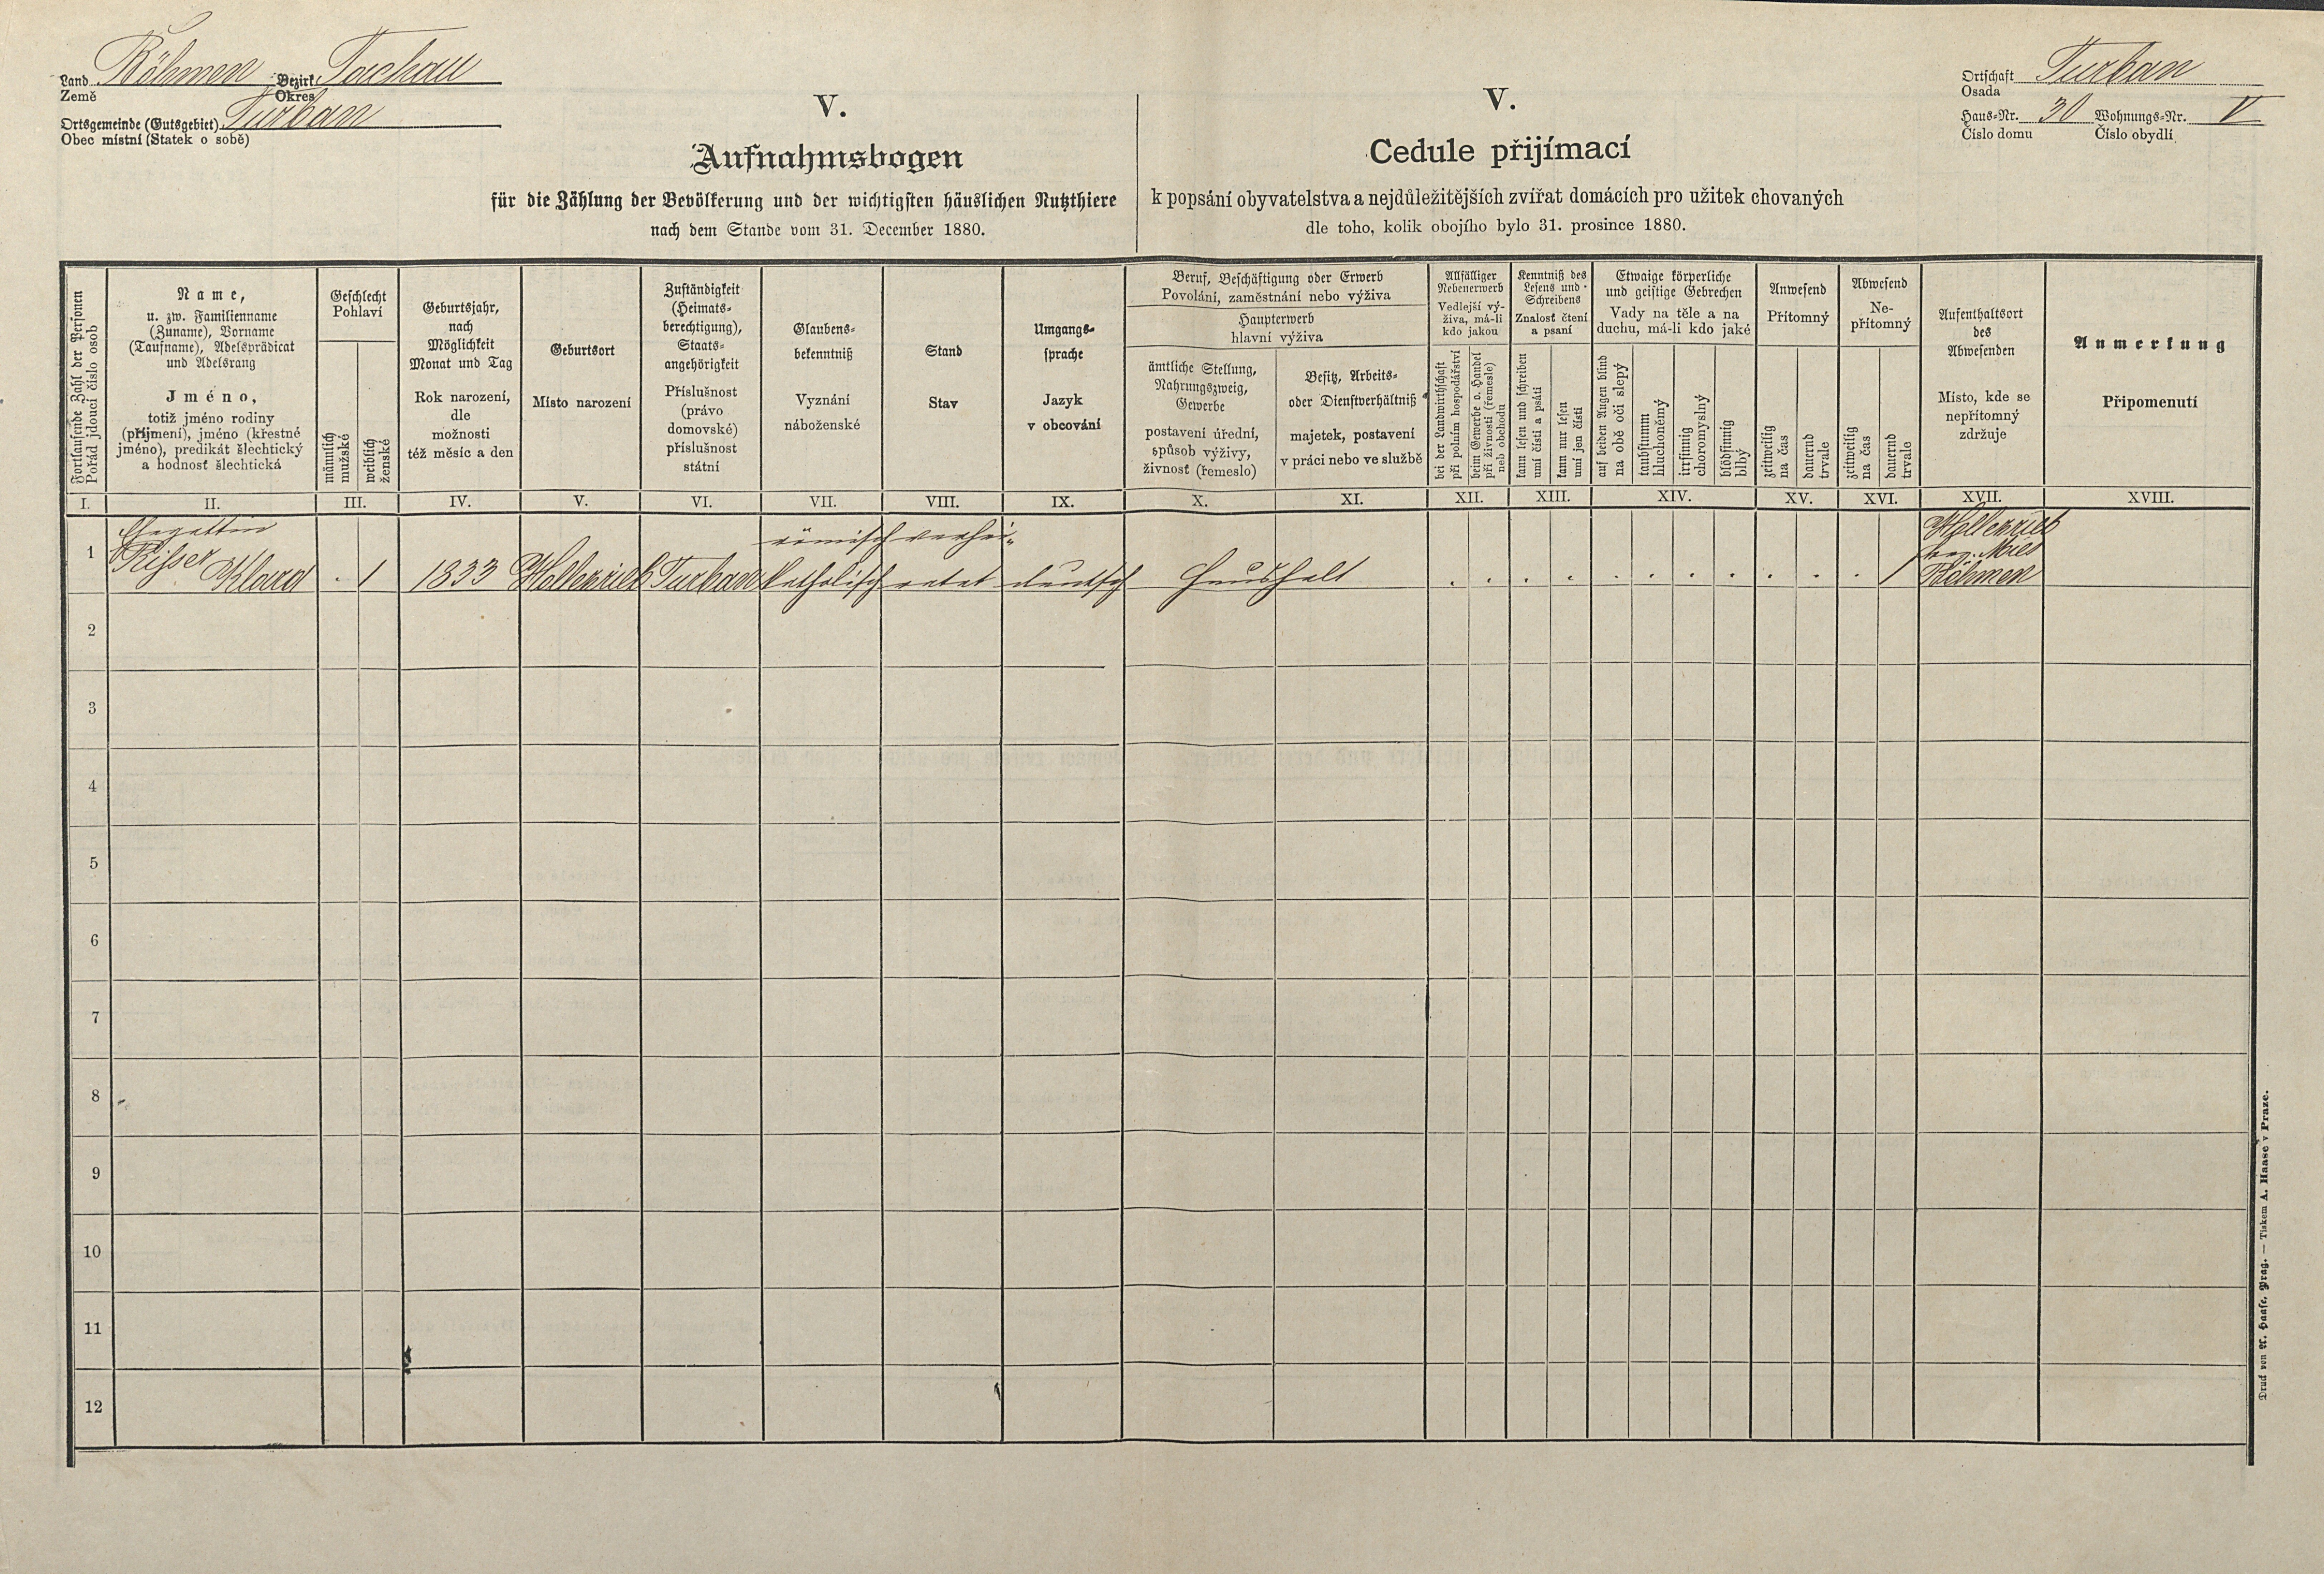 Land Böhmen Bezirk Tachau
Země Okres
Ortsgemeinde (Gutsgebiet) Turban
Obec místní (Statek o sobě)
Ortschaft Turban
Osada
Haus-Nr. 30 Wohnungs-Nr. V
Číslo domu Číslo obydlí
V.
Aufnahmsbogen
für die Zählung der Bevölkerung und der wichtigsten häuslichen Nutzthiere
nach dem Stande vom 31. December 1880.
V.
Cedule přijímací
k popsání obyvatelstva a nejdůležitějších zvířat domácích pro užitek chovaných
dle toho, kolik obojího bylo 31. prosince 1880.
Fortlaufende Zahl der Personen
Pořád jdoucí číslo osob
Name,
u. zw. Familienname
(Zuname), Vorname
(Taufname), Adelsprädicat
und Adelsrang
Jméno,
totiž jméno rodiny
(příjmení), jméno (křestné
jméno), predikát šlechtický
a hodnosť šlechtická
Geschlecht
Pohlaví
männlich
mužské
weiblich
ženské
Geburtsjahr,
nach
Möglichkeit
Monat und Tag
Rok narození,
dle
možnosti
též měsíc a den
Geburtsort
Místo narození
Zuständigkeit
(Heimats-
berechtigung),
Staats-
angehörigkeit
Příslušnost
(právo
domovské)
příslušnost
státní
Glaubens-
bekenntniß
Vyznání
náboženské
Stand
Stav
Umgangs-
sprache
Jazyk
v obcování
Beruf, Beschäftigung oder Erwerb
Povolání, zaměstnání nebo výživa
Haupterwerb
hlavní výživa
ämtliche Stellung,
Nahrungszweig,
Gewerbe
postavení úřední,
spůsob výživy,
živnosť (řemeslo)
Besitz, Arbeits-
oder Dienstverhältniß
majetek, postavení
v práci nebo ve službě
Allfälliger
Nebenerwerb
Vedlejší vý-
živa, má-li
kdo jakou
bei der Landwirthschaft
při polním hospodářství
beim Gewerbe o. Handel
při živnosti (řemesle)
neb obchodu
Kenntniß des
Lesens und
Schreibens
Znalosť čtení
a psaní
kann lesen und schreiben
umí čísti a psáti
kann nur lesen
umí jen čísti
Etwaige körperliche
und geistige Gebrechen
Vady na těle a na
duchu, má-li kdo jaké
auf beiden Augen blind
na obě oči slepý
taubstumm
hluchoněmý
irrsinnig
choromyslný
blödsinnig
blbý
Anwesend
Přítomný
zeitweilig
na čas
dauernd
trvale
Abwesend
Ne-
přítomný
zeitweilig
na čas
dauernd
trvale
Aufenthaltsort
des
Abwesenden
Místo, kde se
nepřítomný
zdržuje
Anmerkung
Připomenutí
I. II. III. IV. V. VI. VII. VIII. IX. X. XI. XII. XIII. XIV. XV. XVI. XVII. XVIII.
Ehegattin römisch verhei- Hollezrieb
1 Risser bez. Mies
Klara . 1 1833 Hollezrieb Turban katholisch ratet deutsch Haushalt . . . . . . . . . . . 1 Böhmen
2
3
4
5
6
7
8
9
10
11
12
Druck von A. Haase, Prag. — Tiskem A. Haase v Praze.